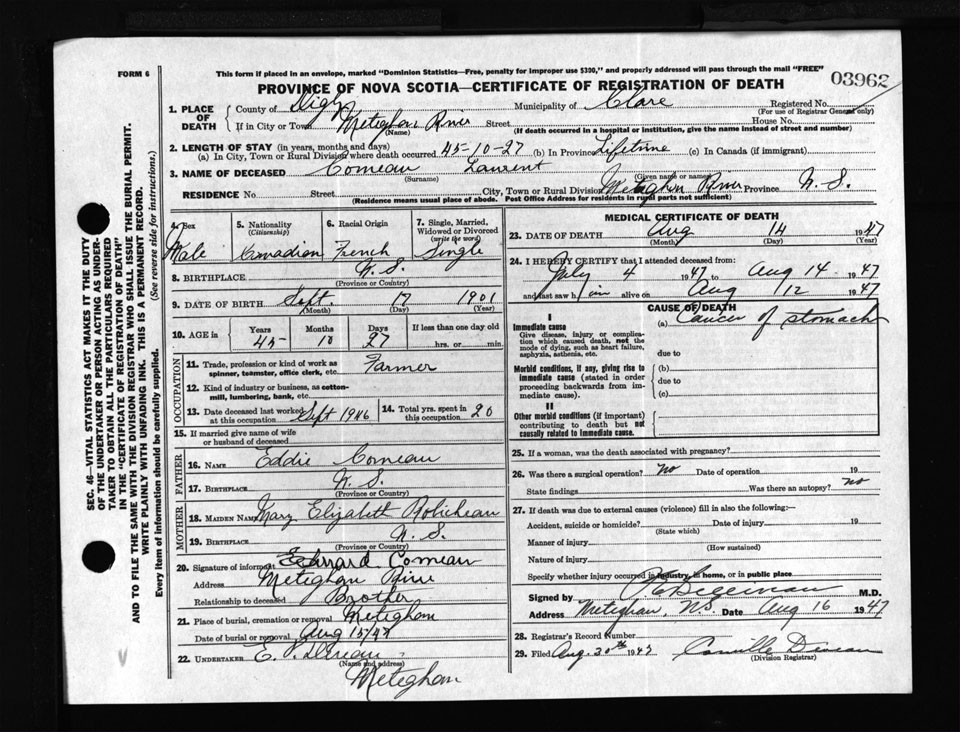 FORM 6
This form if placed in an envelope, marked "Dominion Statistics—Free, penalty for improper use $300," and properly addressed will pass through the mail "FREE"
PROVINCE OF NOVA SCOTIA—CERTIFICATE OF REGISTRATION OF DEATH
03962
1. PLACE OF DEATH County of Digby Municipality of Clare Registered No.
(For use of Registrar General only)
If in City or Town Meteghan River Street House No.
(Name) (If death occurred in a hospital or institution, give the name instead of street and number)
2. LENGTH OF STAY (in years, months and days)
(a) In City, Town or Rural Division where death occurred 45-10-27 (b) In Province Lifetime (c) In Canada (if immigrant)
3. NAME OF DECEASED Comeau Laurent
(Surname) (Given name or names)
RESIDENCE No. Street City, Town or Rural Division Meteghan River Province N. S.
(Residence means usual place of abode. Post Office Address for residents in rural parts not sufficient)
4. Sex 5. Nationality (Citizenship) 6. Racial Origin 7. Single, Married, Widowed or Divorced (write the word)
Male Canadian French Single
8. BIRTHPLACE N. S.
(Province or Country)
9. DATE OF BIRTH Sept. 17 1901
(Month) (Day) (Year)
10. AGE in Years Months Days If less than one day old
45 10 27 hrs. or min.
OCCUPATION
11. Trade, profession or kind of work as spinner, teamster, office clerk, etc. Farmer
12. Kind of industry or business, as cotton-mill, lumbering, bank, etc.
13. Date deceased last worked at this occupation Sept 1946 14. Total yrs. spent in this occupation 20
15. If married give name of wife or husband of deceased
FATHER
16. NAME Eddie Comeau
17. BIRTHPLACE N. S.
(Province or Country)
MOTHER
18. MAIDEN NAME Mary Elizabeth Robicheau
19. BIRTHPLACE N. S.
(Province or Country)
20. Signature of informant Edward Comeau
Address Meteghan River
Relationship to deceased Brother
21. Place of burial, cremation or removal Meteghan
Date of burial or removal Aug 15/47
22. UNDERTAKER E.
(Name and address)
Meteghan
MEDICAL CERTIFICATE OF DEATH
23. DATE OF DEATH Aug 14 1947
(Month) (Day) (Year)
24. I HEREBY CERTIFY that I attended deceased from:
July 4 1947 to Aug 14 1947
and last saw him alive on Aug 12 1947
CAUSE OF DEATH
I
Immediate cause (a) Cancer of stomach
Give disease, injury or complication which caused death, not the mode of dying, such as heart failure, asphyxia, asthenia, etc.
due to
Morbid conditions, if any, giving rise to immediate cause (stated in order proceeding backwards from immediate cause).
(b)
due to
(c)
II
Other morbid conditions (if important) contributing to death but not causally related to immediate cause.
25. If a woman, was the death associated with pregnancy?
26. Was there a surgical operation? no Date of operation 19
State findings Was there an autopsy? no
27. If death was due to external causes (violence) fill in also the following:—
Accident, suicide or homicide? Date of injury 19
(State which)
Manner of injury
(How sustained)
Nature of injury
Specify whether injury occurred in industry, in home, or in public place
Signed by M.D.
Address Meteghan, N.S. Date Aug 16 1947
28. Registrar's Record Number
29. Filed Aug. 30th 1947 Camille
(Division Registrar)
SEC. 46—VITAL STATISTICS ACT MAKES IT THE DUTY
OF THE UNDERTAKER OR PERSON ACTING AS UNDER-
TAKER TO OBTAIN ALL THE PARTICULARS REQUIRED
IN THE "CERTIFICATE OF REGISTRATION OF DEATH"
AND TO FILE THE SAME WITH THE DIVISION REGISTRAR WHO SHALL ISSUE THE BURIAL PERMIT.
WRITE PLAINLY WITH UNFADING INK. THIS IS A PERMANENT RECORD.
Every item of information should be carefully supplied. (See reverse side for instructions.)